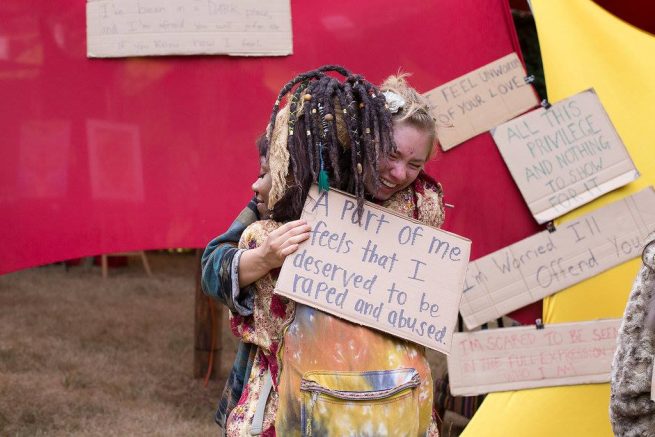 I've been in a DARK place,
and I'm afraid you will
if you know how I feel.
I FEEL UNWORTHY
OF YOUR LOVE
ALL THIS
PRIVILEGE
AND NOTHING
TO SHOW
FOR IT
A part of me
feels that I
deserved to be
raped and abused.
I'm Worried I'll
Offend You
I'M SCARED TO BE SEEN
IN THE FULL EXPRESSION
WHO I AM